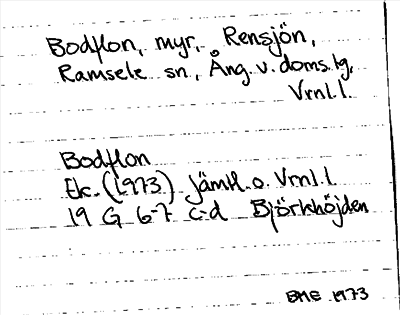 Bodflon, myr, Rensjön,
Ramsele sn, Ång. v. doms.lg,
Vrnl.l.
Bodflon
Ek. (1973) Jämtl. o. Vrnl.l.
19 G 6-7 c-d Björkhöjden
BME 1973